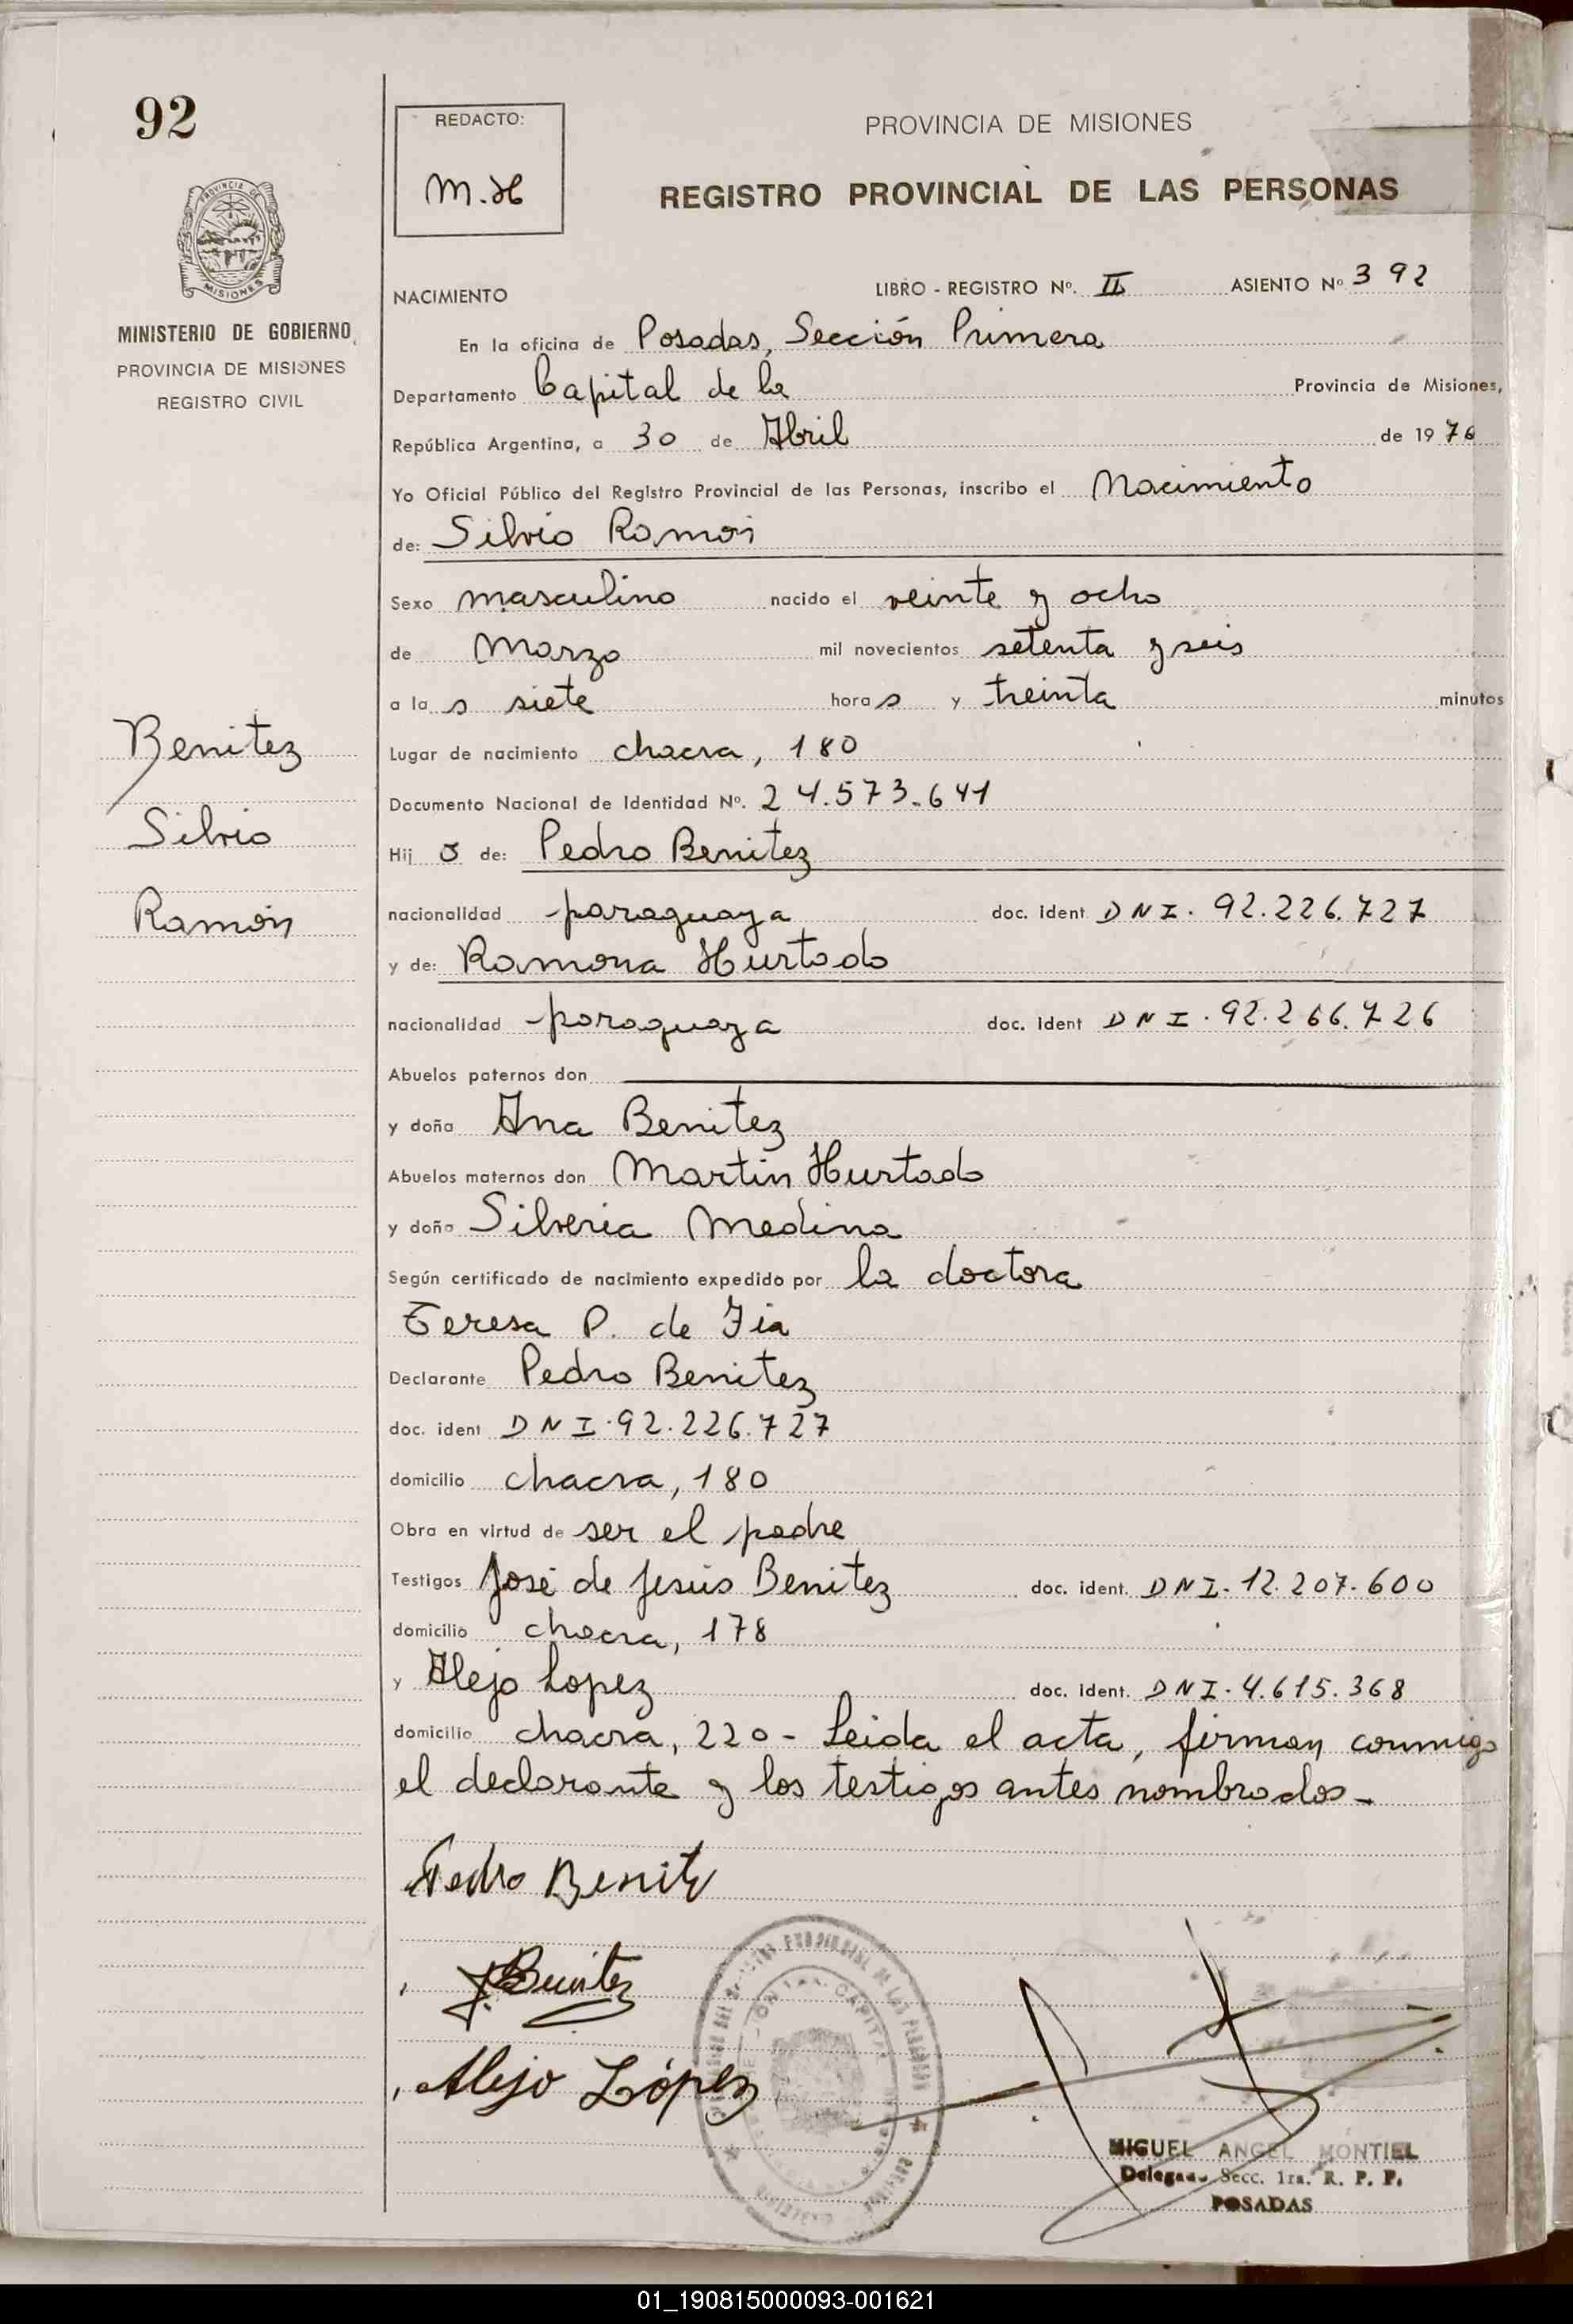 92
REDACTO:
M.H
PROVINCIA DE MISIONES
REGISTRO PROVINCIAL DE LAS PERSONAS
PROVINCIA DE
MISIONES
MINISTERIO DE GOBIERNO
PROVINCIA DE MISIONES
REGISTRO CIVIL
NACIMIENTO LIBRO - REGISTRO Nº. II ASIENTO Nº 392
En la oficina de Posadas, Sección Primera
Departamento Capital de la Provincia de Misiones,
República Argentina, a 30 de Abril de 1976
Yo Oficial Público del Registro Provincial de las Personas, inscribo el Nacimiento
de: Silvio Ramón
Sexo masculino nacido el veinte y ocho
de Marzo mil novecientos setenta y seis
a la s siete hora s y treinta minutos
Benitez
Silvio
Ramón
Lugar de nacimiento chacra, 180
Documento Nacional de Identidad Nº. 24.573.641
Hij o de: Pedro Benitez
nacionalidad paraguaya doc. ident DNI. 92.226.727
y de: Ramona Hurtado
nacionalidad paraguaya doc. ident DNI. 92.266.726
Abuelos paternos don
y doña Ana Benitez
Abuelos maternos don Martin Hurtado
y doña Silveria Medina
Según certificado de nacimiento expedido por la doctora
Teresa P. de
Declarante Pedro Benitez
doc. ident DNI. 92.226.727
domicilio chacra, 180
Obra en virtud de ser el padre
Testigos José de Jesús Benitez doc. ident. DNI. 12.207.600
domicilio chacra, 178
y Alejo Lopez doc. ident. DNI. 4.615.368
domicilio chacra, 220 - Leida el acta, firman conmigo
el declarante y los testigos antes nombrados -
Pedro Benitez
J. Benitez
Alejo López
MIGUEL ANGEL MONTIEL
Delegado Secc. 1ra. R. P. P.
POSADAS
01_190815000093-001621